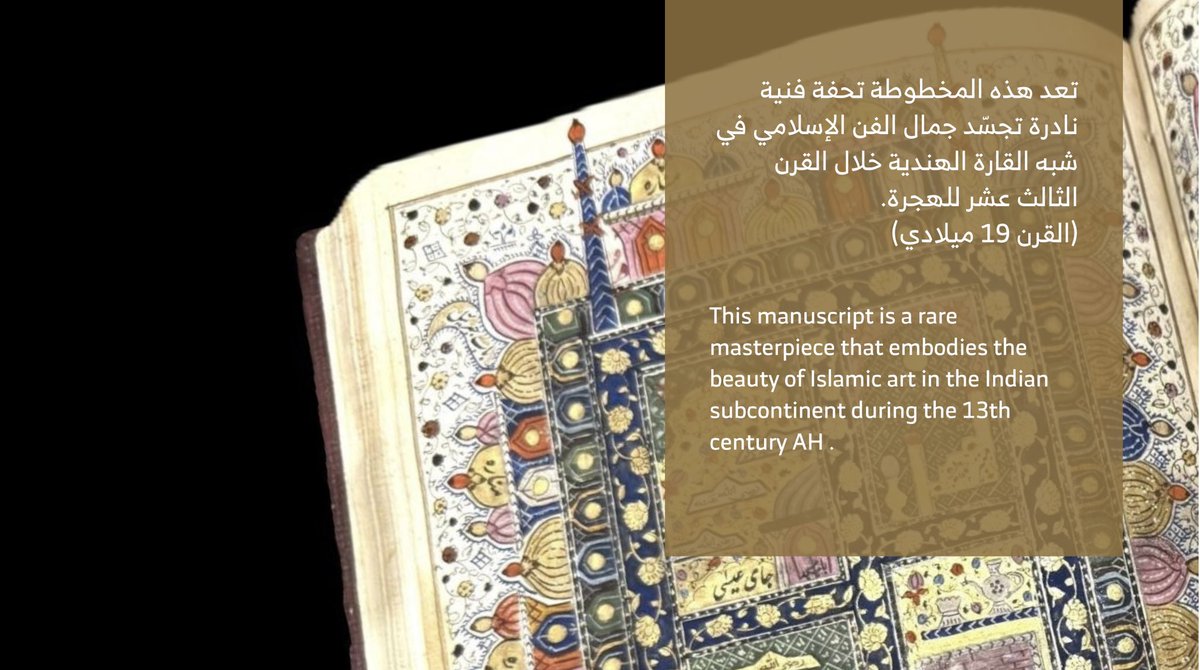 تعد هذه المخطوطة تحفة فنية
نادرة تجسّد جمال الفن الإسلامي في
شبه القارة الهندية خلال القرن
الثالث عشر للهجرة.
(القرن 19 ميلادي)
This manuscript is a rare
masterpiece that embodies the
beauty of Islamic art in the Indian
subcontinent during the 13th
century AH .
جای عیسی